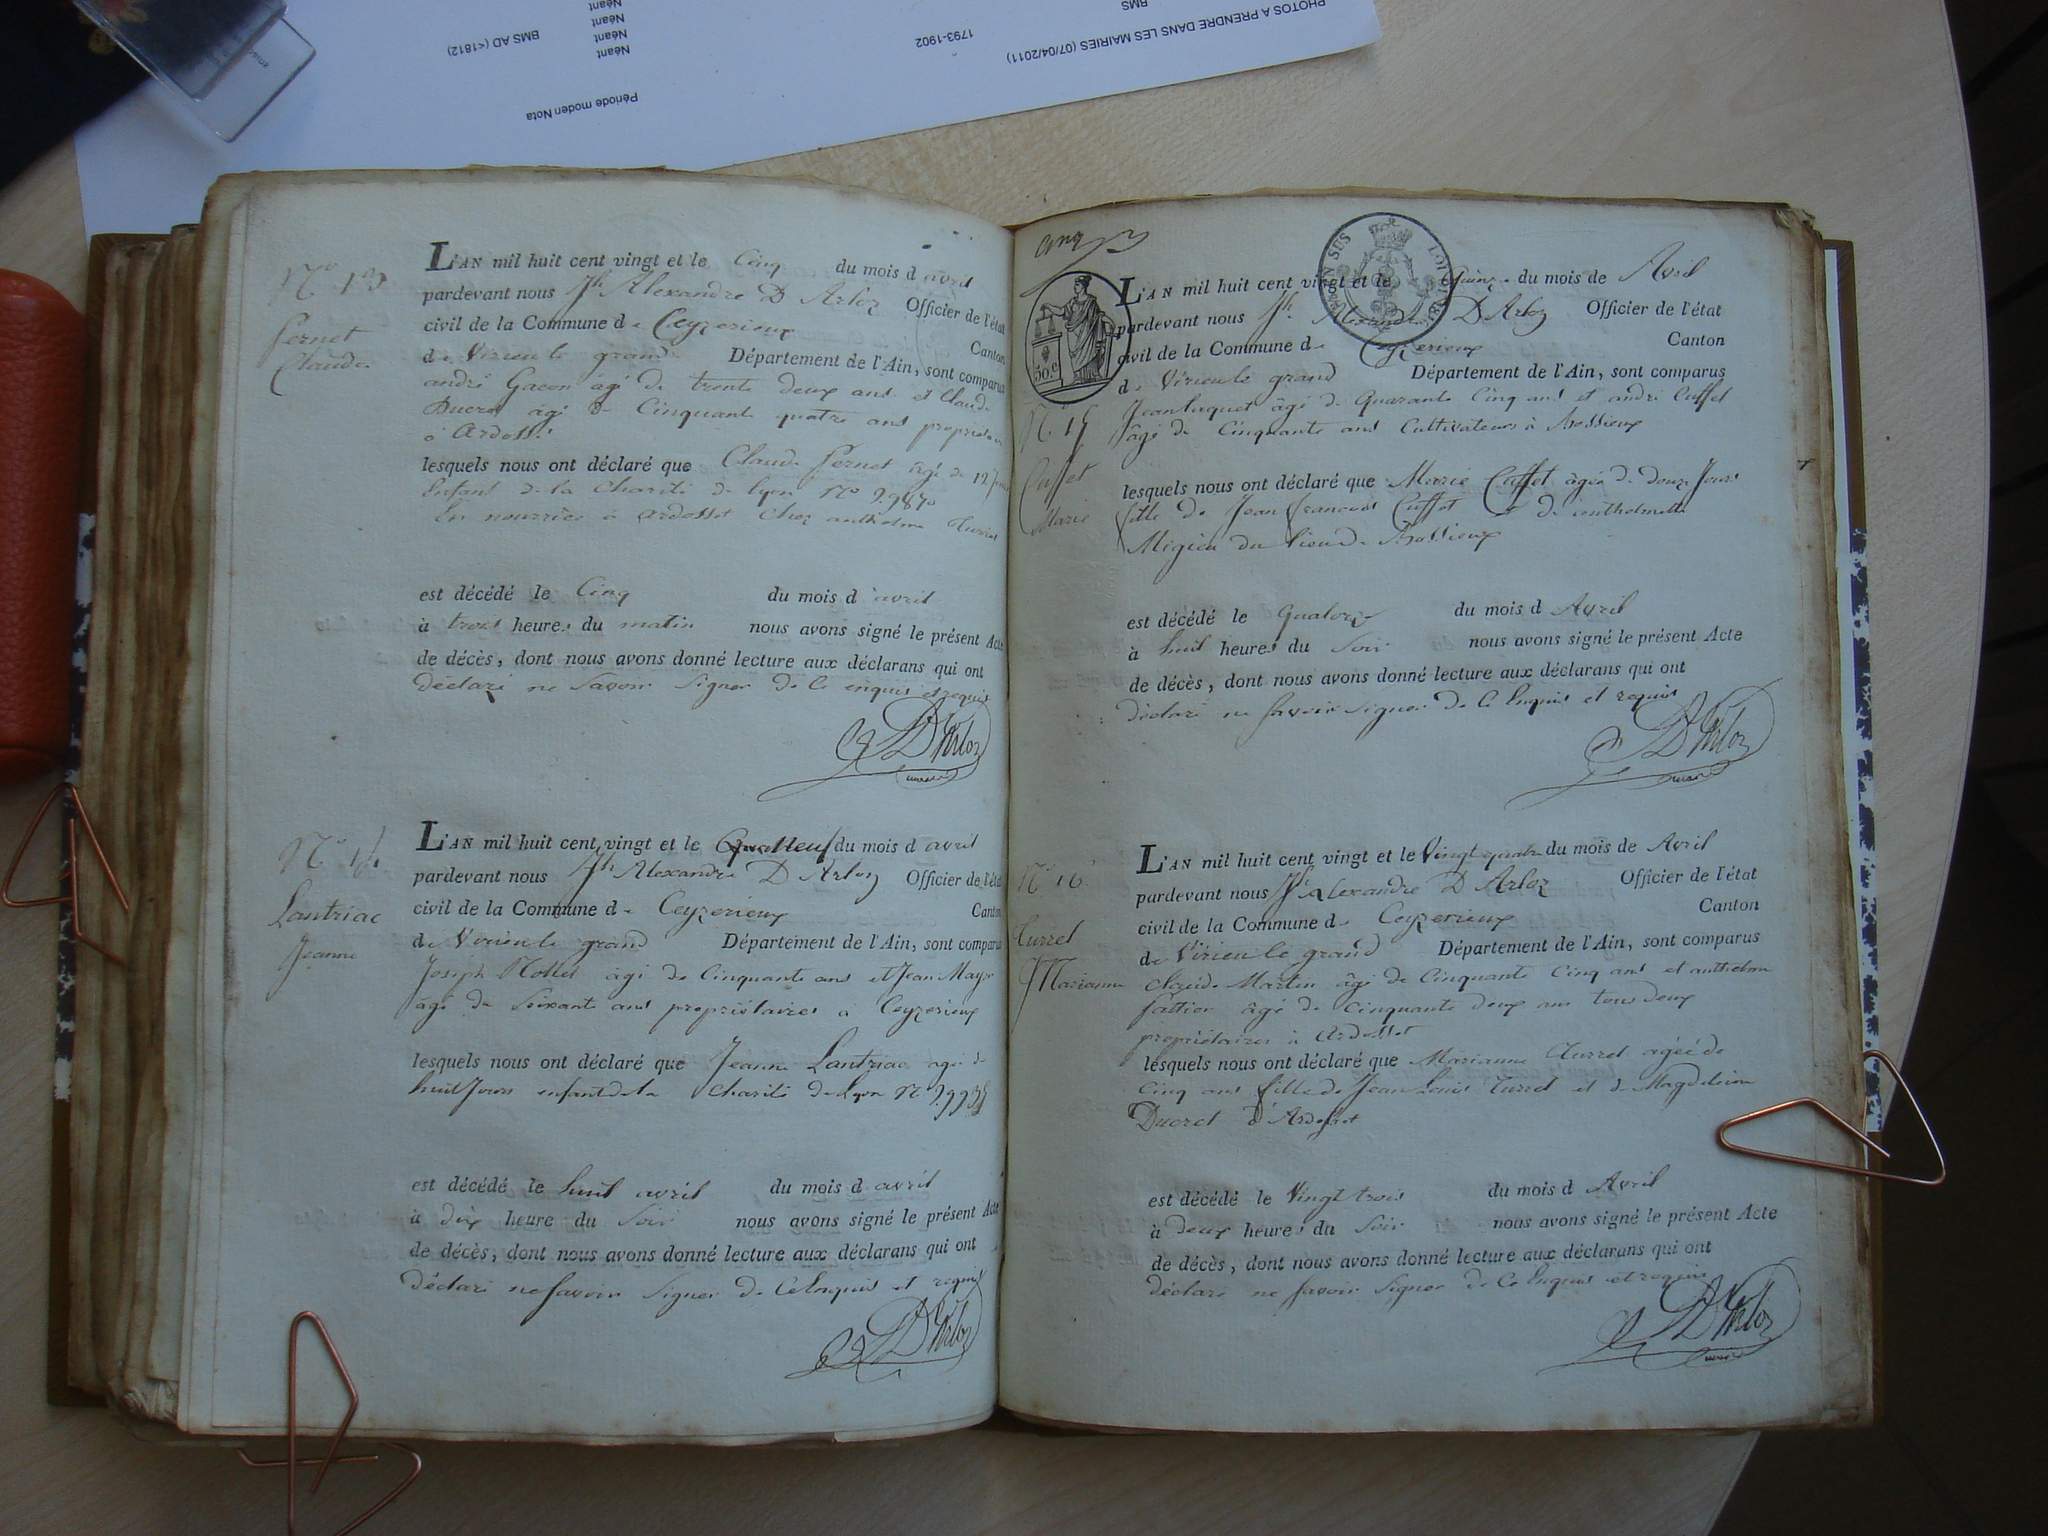 PHOTOS A PRENDRE DANS LES MAIRIES (07/04/2011)
BMS
1793-1902
Néant
Néant
Néant
BMS AD (<1812)
Période moden Nota
N° 13
Fernet
Claude
L'AN mil huit cent vingt et le Cinq du mois d avril
pardevant nous Jh Alexandre D Arloz Officier de l'état
civil de la Commune de Ceyzerieux Canton
de Virieu le grand Département de l'Ain, sont comparus
andré Gacon âgé de trente deux ans et Claude
Ducret âgé de Cinquante quatre ans propriétaires
à Ardosset
lesquels nous ont déclaré que Claude Fernet âgé de 12 jours
Enfant de la Charité de lyon N°
En nourrice à ardosset chez anthelme Turrel
est décédé le Cinq du mois d avril
à trois heures du matin nous avons signé le présent Acte
de décès, dont nous avons donné lecture aux déclarans qui ont
déclaré ne Savoir Signer de ce enquis et requis
D'Arloz
N° 14
Lantriac
Jeanne
L'AN mil huit cent vingt et le neuf du mois d avril
pardevant nous Jh Alexandre D Arloz Officier de l'état
civil de la Commune de Ceyzerieux Canton
de Virieu le grand Département de l'Ain, sont comparus
Joseph Mollet âgé de Cinquante ans et Jean May
âgé de Soixante ans propriétaires à Ceyzerieux
lesquels nous ont déclaré que Jeanne Lantriac agée de
huit Jours enfant de la Charité de Lyon N°
est décédé le huit avril du mois d avril
à dix heure du Soir nous avons signé le présent Acte
de décès, dont nous avons donné lecture aux déclarans qui ont
déclaré ne Savoir Signer de Ce Enquis et requis
D'Arloz
Cinq
50.c
LOI
N° 15
Cuffet
Marie
L'AN mil huit cent vingt et le Quinze du mois de Avril
pardevant nous Jh Alexandre D Arloz Officier de l'état
civil de la Commune de Ceyzerieux Canton
de Virieu le grand Département de l'Ain, sont comparus
Jean âgé de Quarante Cinq ans et andré Cuffet
âgé de Cinquante ans Cultivateurs à Aossieux
lesquels nous ont déclaré que Marie Cuffet âgée de douze Jours
fille de Jean francois Cuffet et de anthelmette
Migieu du lieu de Aossieux
est décédé le Quatorze du mois d Avril
à huit heures du Soir nous avons signé le présent Acte
de décès, dont nous avons donné lecture aux déclarans qui ont
déclaré ne Savoir Signer de Ce Enquis et requis
D'Arloz
N° 16
Turrel
Marianne
L'AN mil huit cent vingt et le Vingt quatre du mois de Avril
pardevant nous Jh Alexandre D Arloz Officier de l'état
civil de la Commune de Ceyzerieux Canton
de Virieu le grand Département de l'Ain, sont comparus
Claude Martin âgé de Cinquante Cinq ans et anthelme
fattier âgé de Cinquante deux ans tous deux
propriétaires à Ardosset
lesquels nous ont déclaré que Marianne Turrel agée de
Cinq ans fille de Jean Louis Turrel et de Magdeleine
Ducret d'Ardosset
est décédé le Vingt trois du mois d Avril
à deux heures du Soir nous avons signé le présent Acte
de décès, dont nous avons donné lecture aux déclarans qui ont
déclaré ne Savoir Signer de Ce Enquis et requis
D'Arloz